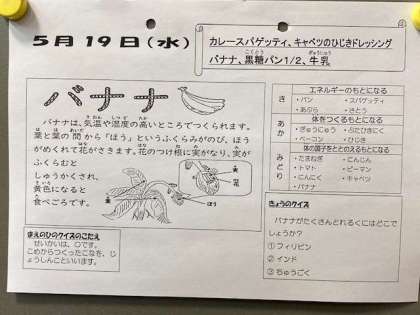 5月19日(水)
カレースパゲッティ、キャベツのひじきドレッシング
バナナ、黒糖パン1/2、牛乳
こくとう
ぎゅうにゅう
バナナ
バナナは、気温や湿度の高いところでつくられます。
葉と葉の間から「ほう」というふくらみがのび、ほう
がめくれて花がさきます。花のつけ根に実がなり、実が
ふくらむと
しゅうかくされ、
黄色になると
食べごろです。
実
花
葉
ほう
まえのひのクイズのこたえ
せいかいは、○です。
こめからつくったこなを、じょ
うしんこといいます。
き
エネルギーのもとになる
・パン
・スパゲティ
・あぶら
・さとう
あか
体をつくるもとになる
・ぎゅうにゅう
・ぶたひきにく
・ベーコン
・ひじき
みどり
体の調子をととのえるもとになる
・たまねぎ
・にんじん
・トマト
・ピーマン
・にんにく
・キャベツ
・バナナ
きょうのクイズ
バナナがたくさんとれるくにはどこで
しょうか?
①フィリピン
②インド
③ちゅうごく